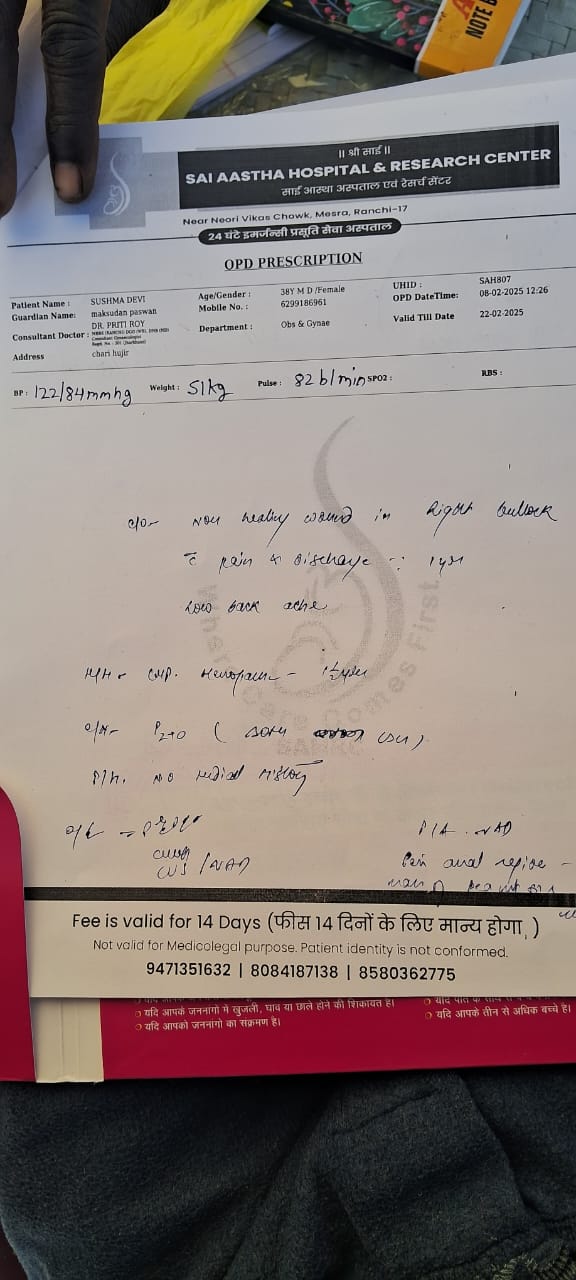 NOTE B
|| श्री साई ||
SAI AASTHA HOSPITAL & RESEARCH CENTER
साई आस्था अस्पताल एवं रिसर्च सेंटर
Near Neori Vikas Chowk, Mesra, Ranchi-17
24 घंटे इमर्जेन्सी प्रसूति सेवा अस्पताल
OPD PRESCRIPTION
Patient Name : SUSHMA DEVI Age/Gender : 38Y M D /Female UHID : SAH807
Guardian Name: maksudan paswan Mobile No. : 6299186961 OPD DateTime: 08-02-2025 12:26
Consultant Doctor : DR. PRITI ROY Department : Obs & Gynae Valid Till Date 22-02-2025
Address chari hujir
BP : 122/84mmhg Weight : 51kg Pulse : 82 b/min SPO2 : RBS :
c/o- Non healing wound in Right buttock
c̄ pain & discharge 1yr
Low back ache
Menopause -
P2+0 (
NO medical History
P/A . NAD
CVS /NAD
anal region -
Whare Care Comes First
SAHRC
Fee is valid for 14 Days (फीस 14 दिनों के लिए मान्य होगा, )
Not valid for Medicolegal purpose. Patient identity is not conformed.
9471351632 | 8084187138 | 8580362775
यदि आपके जननांगो में खुजली, घाव या छाले होने की शिकायत है।
यदि आपको जननांगो का संक्रमण है।
यदि आपके तीन से अधिक बच्चे है।